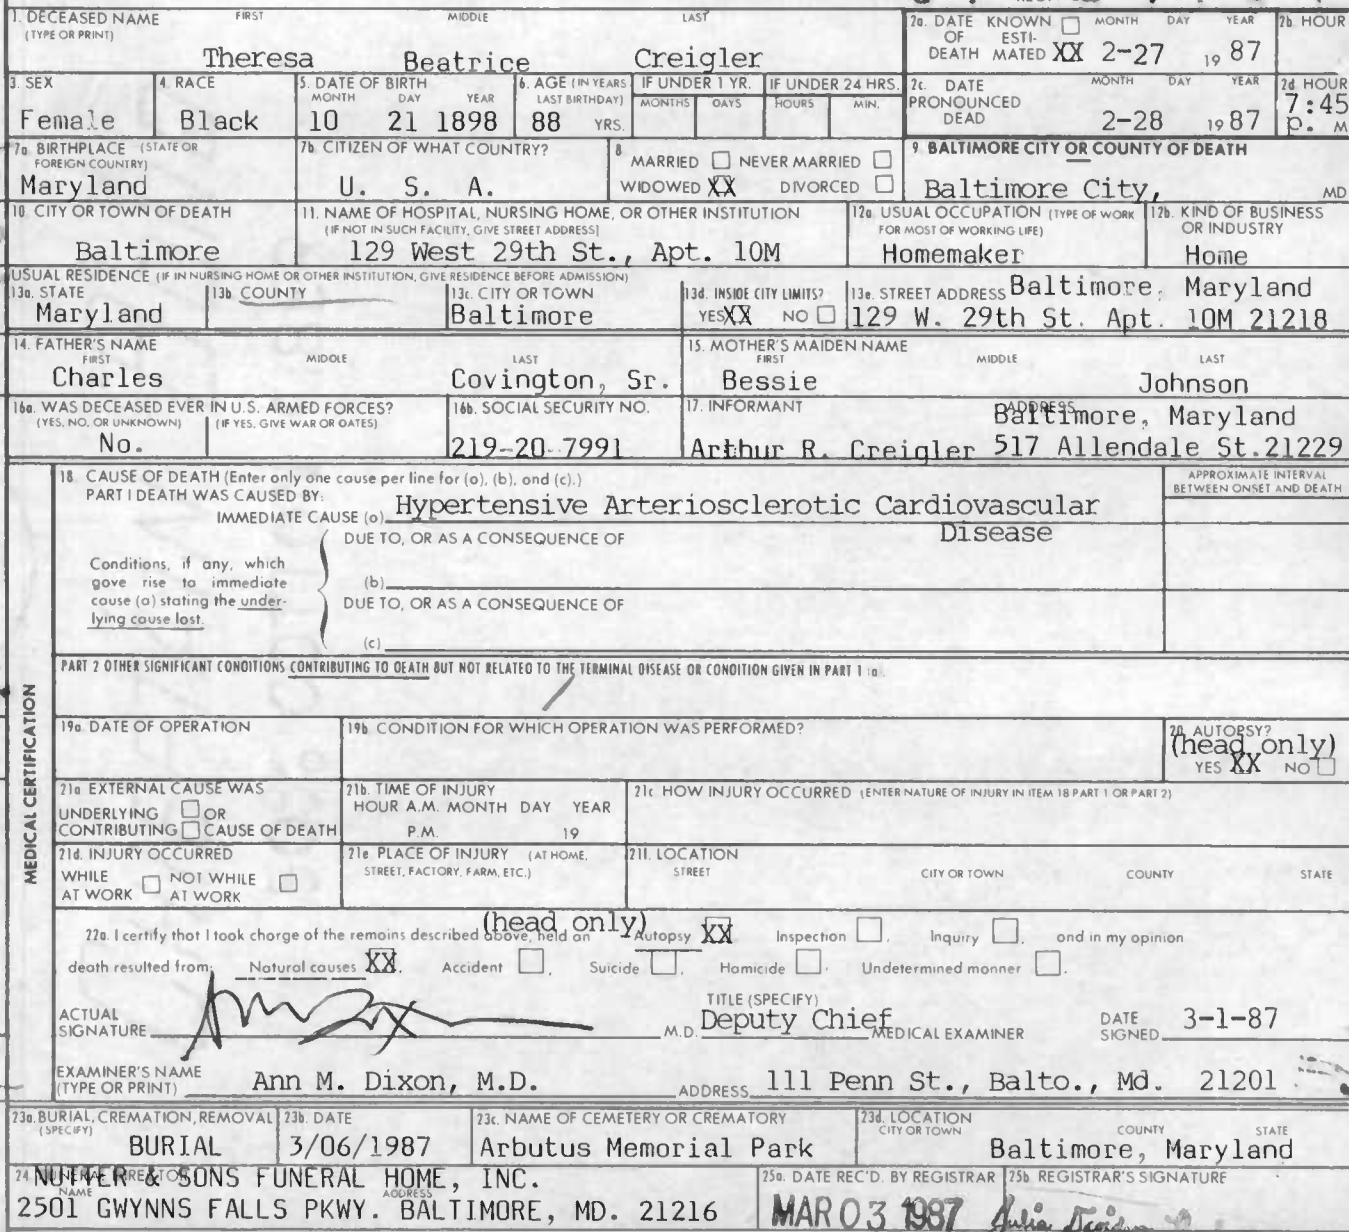 1. DECEASED NAME FIRST MIDDLE LAST
(TYPE OR PRINT)
Theresa Beatrice Creigler
2a. DATE KNOWN MONTH DAY YEAR
OF ESTI-
DEATH MATED XX 2-27 1987
2b. HOUR
3. SEX
Female
4. RACE
Black
5. DATE OF BIRTH
MONTH DAY YEAR
10 21 1898
6. AGE (IN YEARS
LAST BIRTHDAY)
88 YRS.
IF UNDER 1 YR.
MONTHS DAYS
IF UNDER 24 HRS.
HOURS MIN.
2c. DATE MONTH DAY YEAR
PRONOUNCED
DEAD 2-28 1987
2d HOUR
7:45
p. M
7a BIRTHPLACE (STATE OR
FOREIGN COUNTRY)
Maryland
7b CITIZEN OF WHAT COUNTRY?
U. S. A.
8
MARRIED NEVER MARRIED
WIDOWED XX DIVORCED
9 BALTIMORE CITY OR COUNTY OF DEATH
Baltimore City, MD
10. CITY OR TOWN OF DEATH
Baltimore
11. NAME OF HOSPITAL, NURSING HOME, OR OTHER INSTITUTION
(IF NOT IN SUCH FACILITY, GIVE STREET ADDRESS)
129 West 29th St., Apt. 10M
12a USUAL OCCUPATION (TYPE OF WORK
FOR MOST OF WORKING LIFE)
Homemaker
12b. KIND OF BUSINESS
OR INDUSTRY
Home
USUAL RESIDENCE (IF IN NURSING HOME OR OTHER INSTITUTION, GIVE RESIDENCE BEFORE ADMISSION)
13a. STATE
Maryland
13b COUNTY
13c. CITY OR TOWN
Baltimore
13d. INSIDE CITY LIMITS?
YES XX NO
13e. STREET ADDRESS Baltimore, Maryland
129 W. 29th St. Apt. 10M 21218
14. FATHER'S NAME
FIRST MIDDLE LAST
Charles Covington, Sr.
15. MOTHER'S MAIDEN NAME
FIRST MIDDLE LAST
Bessie Johnson
16a. WAS DECEASED EVER IN U.S. ARMED FORCES?
(YES, NO, OR UNKNOWN) (IF YES, GIVE WAR OR DATES)
No.
16b. SOCIAL SECURITY NO.
219-20-7991
17. INFORMANT ADDRESS
Baltimore, Maryland
Arthur R. Creigler 517 Allendale St. 21229
MEDICAL CERTIFICATION
18 CAUSE OF DEATH (Enter only one cause per line for (a), (b), and (c).)
PART I DEATH WAS CAUSED BY:
APPROXIMATE INTERVAL
BETWEEN ONSET AND DEATH
IMMEDIATE CAUSE (a) Hypertensive Arteriosclerotic Cardiovascular
Disease
DUE TO, OR AS A CONSEQUENCE OF
Conditions, if any, which
gave rise to immediate
cause (a) stating the under-
lying cause last.
(b)
DUE TO, OR AS A CONSEQUENCE OF
(c)
PART 2 OTHER SIGNIFICANT CONDITIONS CONTRIBUTING TO DEATH BUT NOT RELATED TO THE TERMINAL DISEASE OR CONDITION GIVEN IN PART 1 (a)
19a DATE OF OPERATION
19b CONDITION FOR WHICH OPERATION WAS PERFORMED?
20 AUTOPSY?
(head only)
YES XX NO
21a EXTERNAL CAUSE WAS
UNDERLYING OR
CONTRIBUTING CAUSE OF DEATH
21b. TIME OF INJURY
HOUR A.M. MONTH DAY YEAR
P.M. 19
21c HOW INJURY OCCURRED (ENTER NATURE OF INJURY IN ITEM 18 PART 1 OR PART 2)
21d. INJURY OCCURRED
WHILE AT WORK NOT WHILE AT WORK
21e PLACE OF INJURY (AT HOME,
STREET, FACTORY, FARM, ETC.)
21f. LOCATION
STREET CITY OR TOWN COUNTY STATE
(head only)
22a. I certify that I took charge of the remains described above, held an Autopsy XX Inspection , Inquiry , and in my opinion
death resulted from: Natural causes XX, Accident , Suicide , Homicide , Undetermined manner .
ACTUAL
SIGNATURE M.D.
TITLE (SPECIFY)
Deputy Chief MEDICAL EXAMINER
DATE
SIGNED 3-1-87
EXAMINER'S NAME
(TYPE OR PRINT) Ann M. Dixon, M.D. ADDRESS 111 Penn St., Balto., Md. 21201
23a. BURIAL, CREMATION, REMOVAL
(SPECIFY)
BURIAL
23b. DATE
3/06/1987
23c. NAME OF CEMETERY OR CREMATORY
Arbutus Memorial Park
23d. LOCATION
CITY OR TOWN COUNTY STATE
Baltimore, Maryland
24 FUNERAL DIRECTOR
NUTTER & SONS FUNERAL HOME, INC.
NAME ADDRESS
2501 GWYNNS FALLS PKWY. BALTIMORE, MD. 21216
25a. DATE REC'D. BY REGISTRAR
MAR 03 1987
25b REGISTRAR'S SIGNATURE